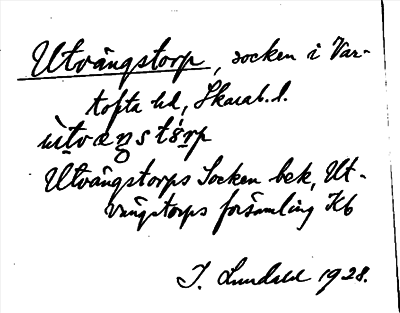 Utvängstorp, socken i Var-
tofta hd, Skarab. l.
ùtvæŋstǿrp
Utvängstorps Socken bek, Ut-
vängstorps församling Kb
I. Lundahl 1928.